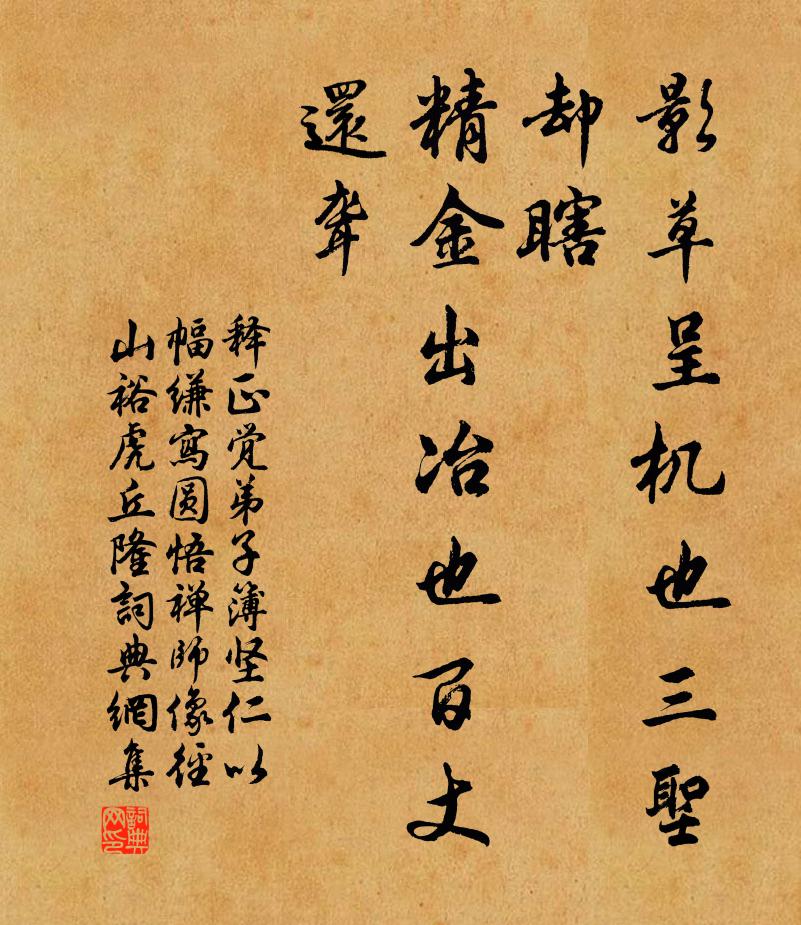 影草呈机也三聖
却瞎
精金出冶也百丈
還聾
释正觉弟子簿坚仁以
幅缣寫圆悟禅师像径
山裕虎丘隆詞典網集
詞典
网印